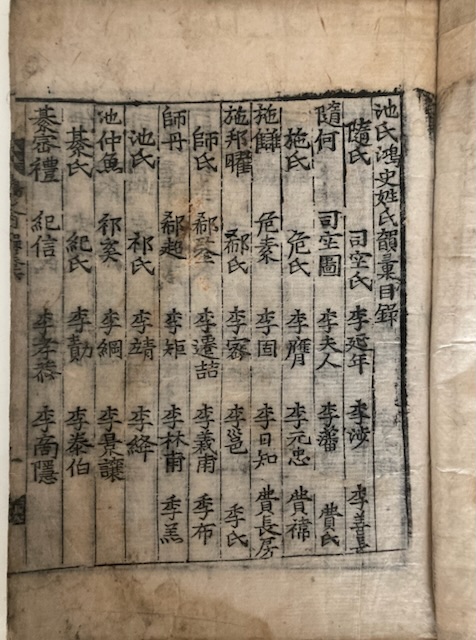 池氏鴻史姓氏韻彙目錄
隨氏 司空氏 李延年 李涉 李善長
隨何 司空圖 李夫人 李藩 費氏
施氏 危氏 李膺 李元忠 費禕
施讎 危素 李固 李日知 費長房
施邦曜 郗氏 李密 李邕 季氏
師氏 郗鉴 李遷喆 李義甫 季布
師丹 郗超 李矩 李林甫 季羔
池氏 祁氏 李靖 李絳
池仲魚 祁奚 李綱 李景讓
綦氏 紀氏 李勣 李泰伯
綦崇禮 紀信 李孝恭 李商隱